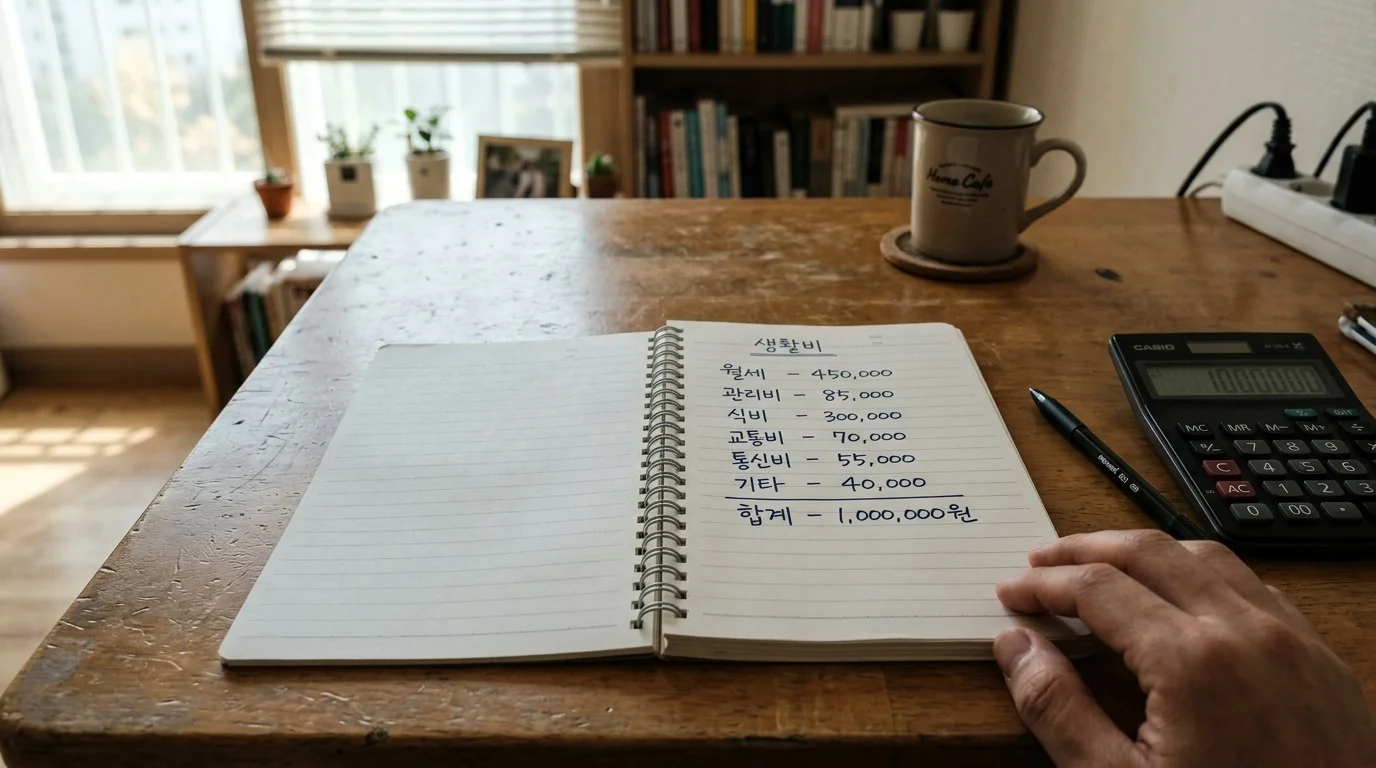 Home Cafe
생활비
월세 - 450,000
관리비 - 85,000
식비 - 300,000
교통비 - 70,000
통신비 - 55,000
기타 - 40,000
합계 - 1,000,000원
CASIO
1000000
MC MR M- M+ ÷
% 7 8 9
C 4 5 6
AC 1 2 3
0 00 ·